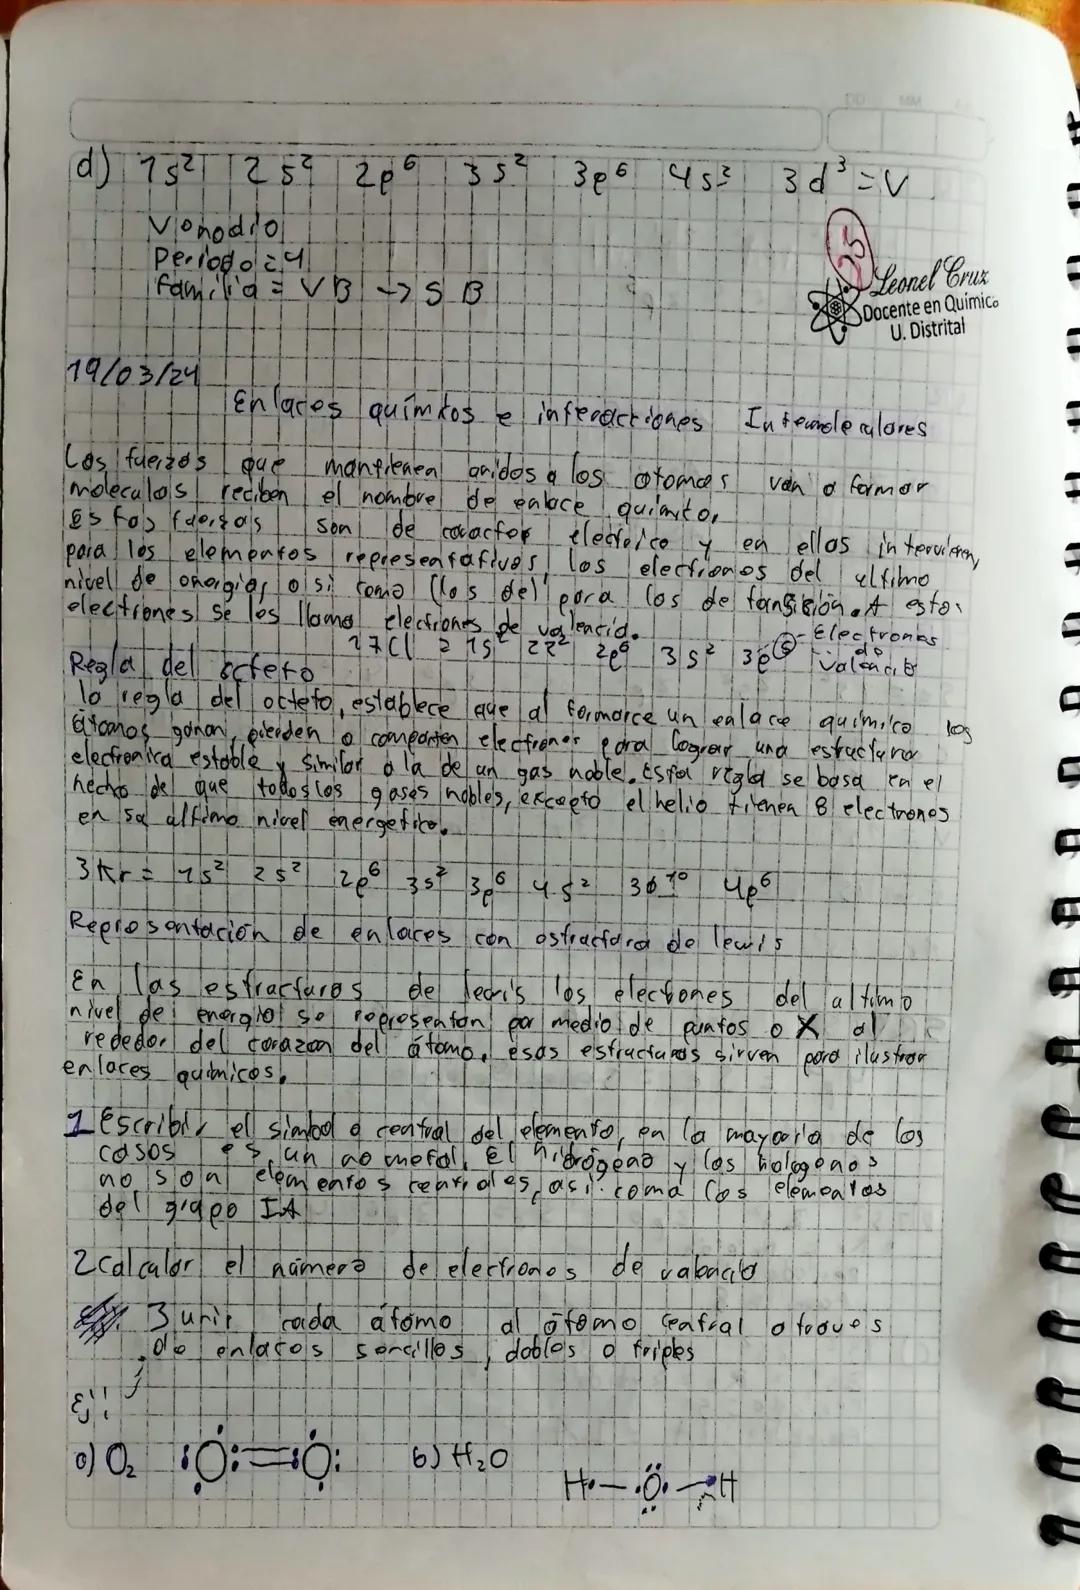 d) 1s² 2s² 2p⁶ 3s² 3p⁶ 4s² 3d³ = V
Vanadio
Periodo = 4
familia = VB -> 5 B
25
Leonel Cruz
Docente en Química
U. Distrital
19/03/24
Enlaces químicos e interacciones Intemoleculares
Las fuerzas que mantienen unidos a los atomos van a formar
moleculas reciben el nombre de enlace quimico,
Estas fuerzas son de caracter electrico y en ellas intervienen,
para los elementos representativos, los electrones del ultimo
nivel de energia, asi como (los del para los de transición. A estos
electrones se les llama electrones de valencia.
17Cl = 1s² 2s² 2p⁶ 3s² 3p⑤ - Electrones
de
valencia
Regla del octeto
la regla del octeto, establece que al formarce un enlace químico los
átomos ganan, pierden o comparten electrones para lograr una estuctura
electronica estable y similar a la de un gas noble. Esta regla se basa en el
hecho de que todos los gases nobles, excepto el helio tienen 8 electrones
en su ultimo nivel energetico.
3Kr = 1s² 2s² 2p⁶ 3s² 3p⁶ 4s² 3d¹⁰ 4p⁶
Representacion de enlaces con estructura de lewis
En las estructuras de lewis los electrones del ultimo
nivel de energia se representan por medio de puntos o X al
rededor del corazon del átomo, esas estructuras sirven para ilustrar
enlaces quimicos.
1 Escribir el simbolo central del elemento, en la mayoria de los
casos es un no metal. El hidrógeno y los halogenos
no son elementos centrales, asi como los elementos
del grupo IA
2 calcular el número de electrones de valencia
3 unir cada átomo al átomo central a traves
de enlaces sencillos, dobles o triples
Ej:
a) O₂ :O:=:O: b) H₂O
H·—·O·—·H